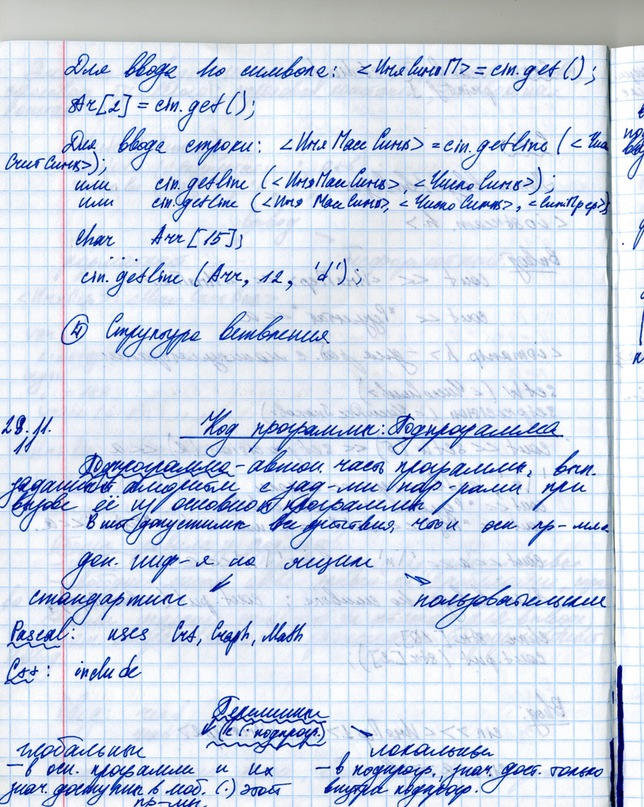 Для ввода по символа: <ИмяСимвП> = cin.get();
Ar[2] = cin.get();
Для ввода строки: <ИмяМассСимв> = cin.getline (<Чис
СчитСимв>);
или cin.getline (<ИмяМассСимв>, <ЧислоСимв>);
или cin.getline (<ИмяМассСимв>, <ЧислоСимв>, <СимвПрер>)
char Arr[15];
...
cin.getline (Arr, 12, 'd');
④ Структура ветвления
29.11. Код программы: Подпрограмма
11
Подпрограмма - автном часть программы, вып.
заданный алгоритм с зад-ми пар-рами при
вызове её из основной программы.
В ней допустимы все действия, что и осн пр-мма
доп. инф-я по
стандартные пользовательские
Pascal: uses Crt, Graph, Math
C++: include
Переменные
(к (·) подпрогр.)
глобальные локальные
- в осн. программы и их - в подпрогр., знач. дост. только
знач. доступны в люб. (·) этой внутри подпрогр.
пр-мы